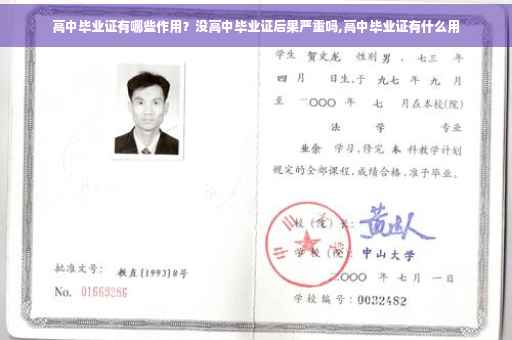 高中毕业证有哪些作用？没高中毕业证后果严重吗,高中毕业证有什么用
学生 贺文龙 性别 男 、七三 年
四 月 日生,于 九七 年 九 月
至 二〇〇〇 年 七 月在本校(院)
法 学 专业
业余 学习,修完 本 科教学计划
规定的全部课程,成绩合格,准予毕业。
校 (院) 长:
学 校 (院): 中山大学
二〇〇〇 年 七 月 一 日
批准文号: 教直[1993]8号
No. 01669286
学校编号: 0032482